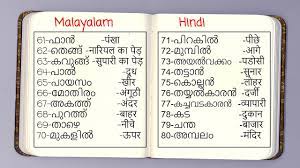 Malayalam
Hindi
61-ഫാൻ -पंखा
62-തെങ്ങ് -नारियल का पेड़
63-കവുങ്ങ് -सुपारी का पेड़
64-പാൽ -दूध
65-പായസം -खीर
66-മോതിരം -अंगूठी
67-അകത്ത് -अंदर
68-പുറത്ത് -बाहर
69-താഴെ -नीचे
70-മുകളിൽ -ऊपर
71-പിറകിൽ -पीछे
72-മുമ്പിൽ -आगे
73-അയൽവക്കം -पडोसी
74-തട്ടാൻ -सुनार
75-കൊല്ലൻ -लुहार
76-കട -दुकान
77-കച്ചവടകാരൻ -व्यापारी
78-കട -दुकान
79-ചന്ത -बाजार
80-അമ്പലം -मंदिर